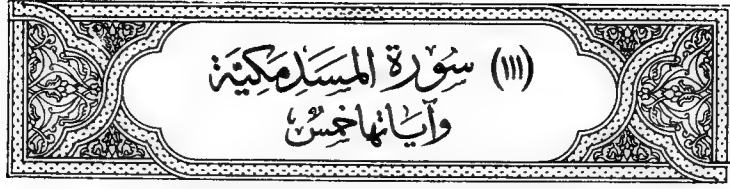 (١١١) سُورَة المسَدِ مَكِيَّة
وَآيَاتها خمسٌ